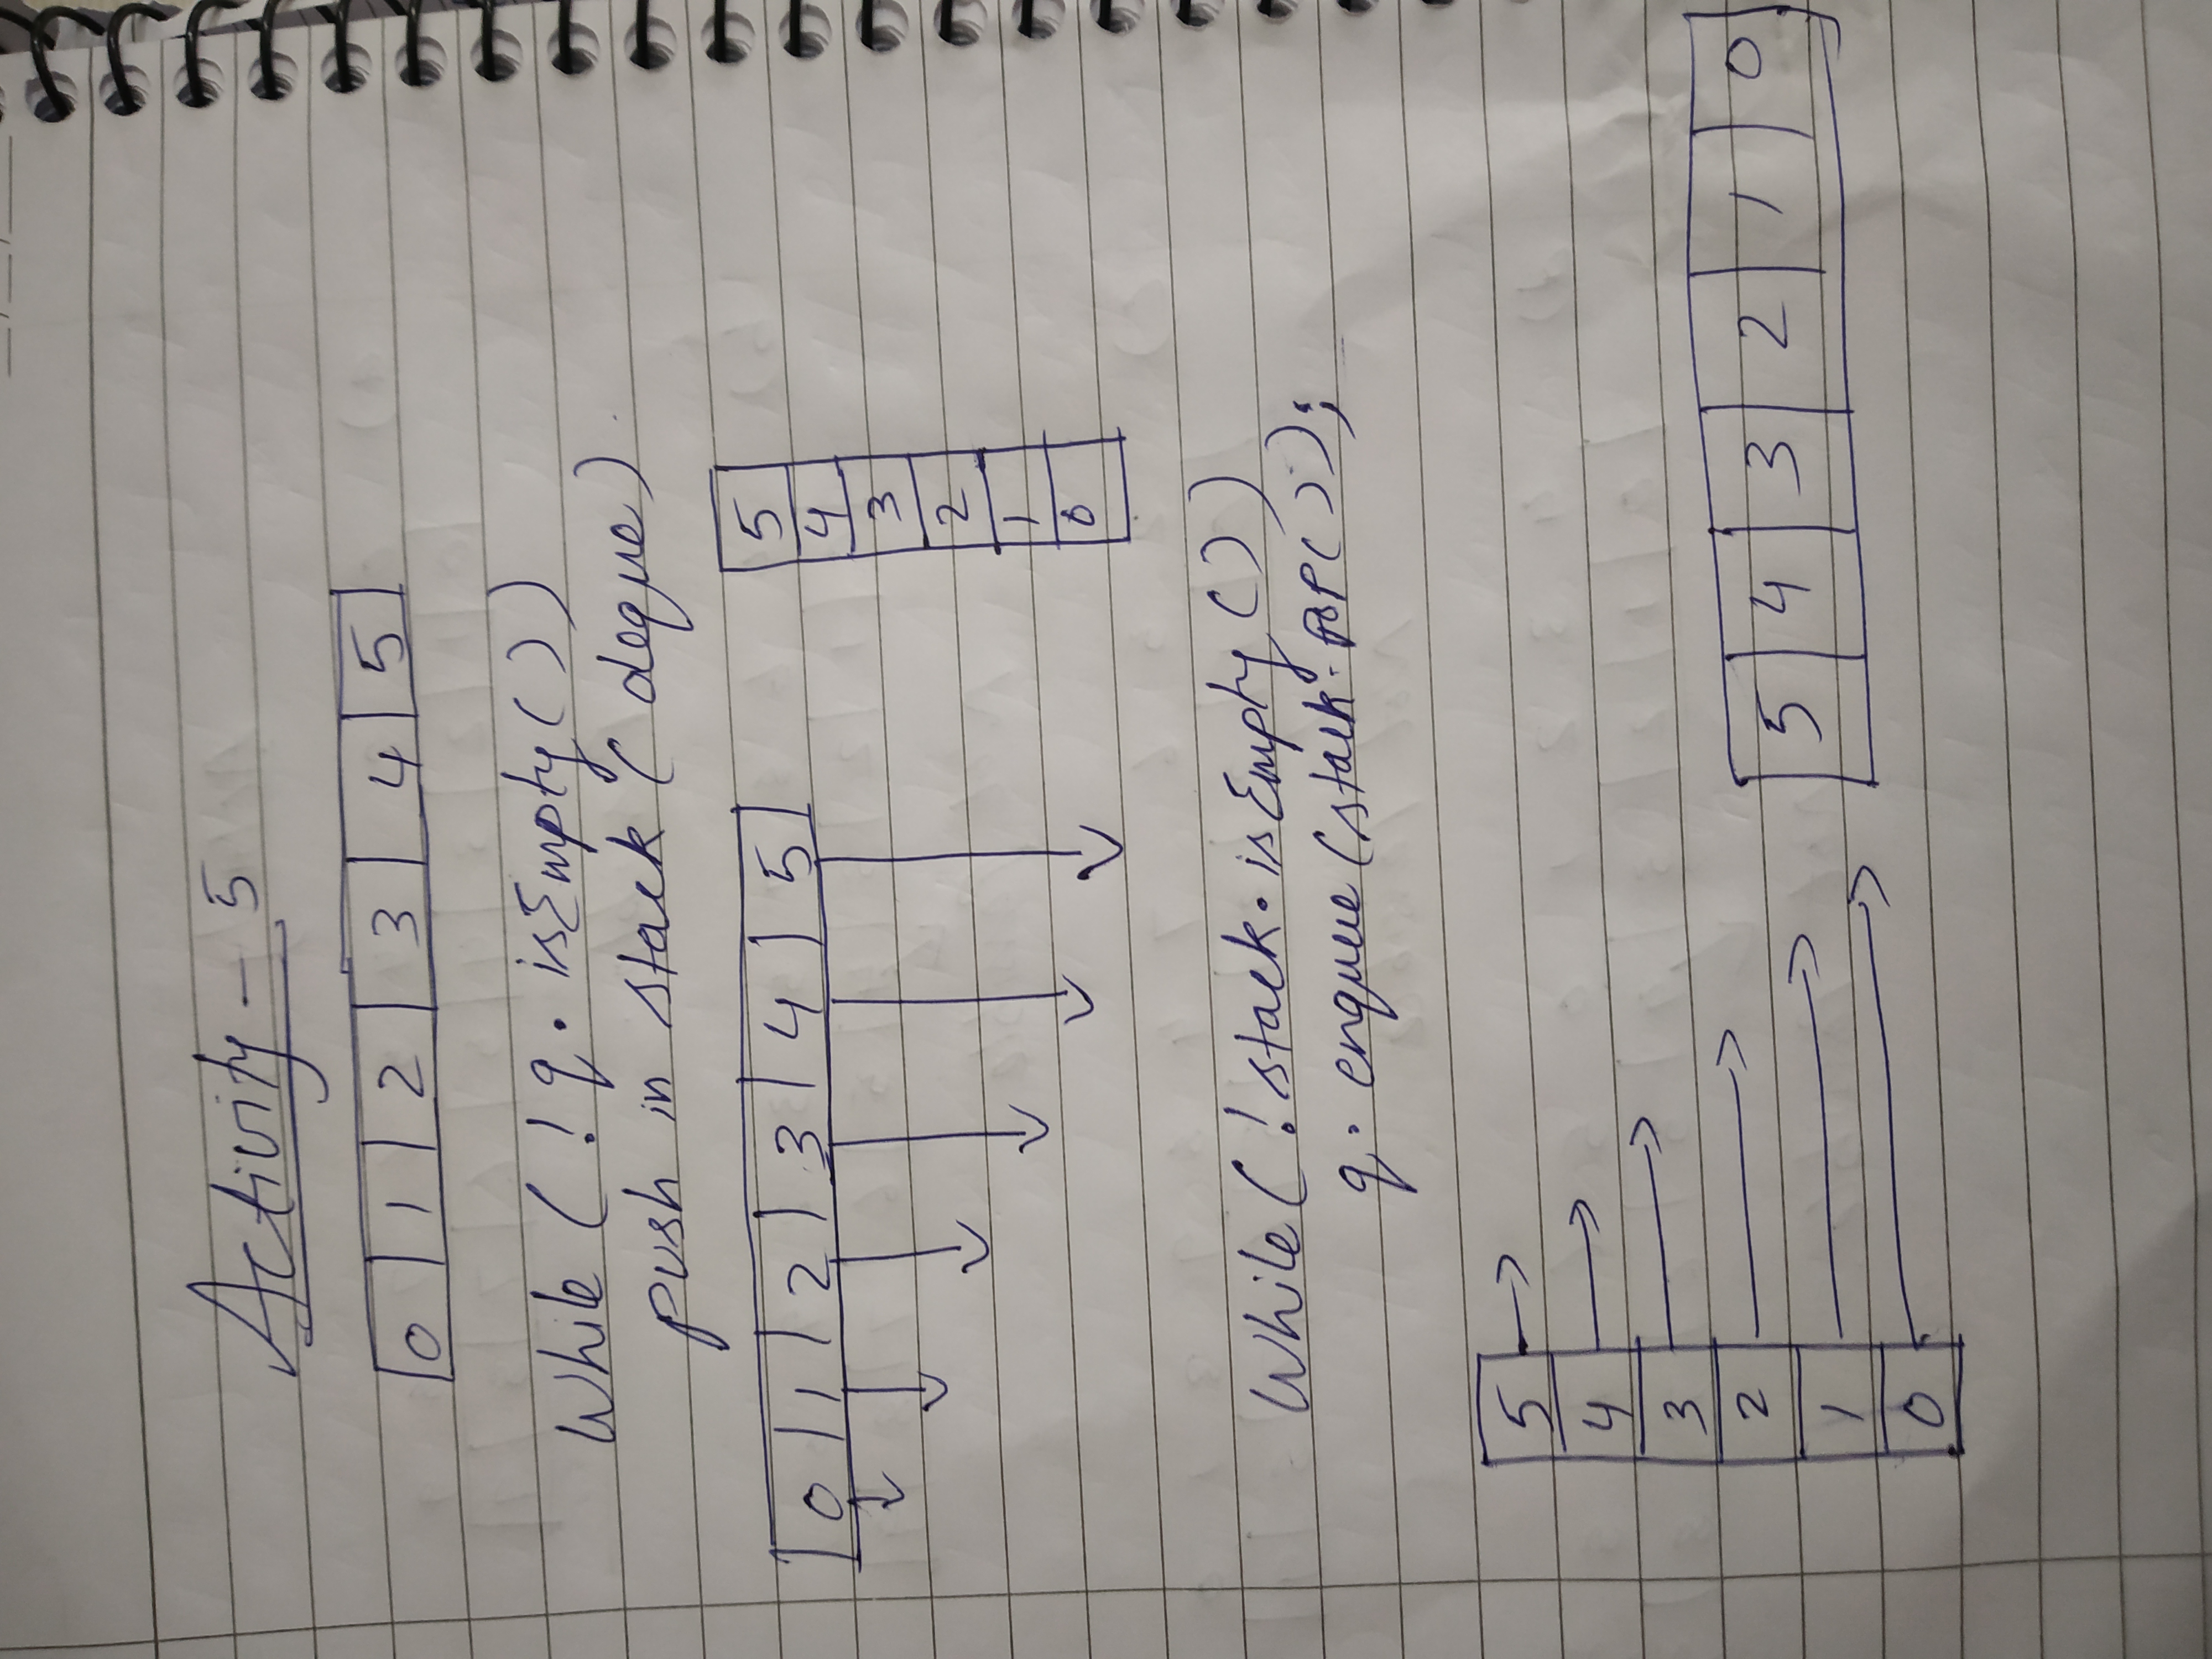 Activity - 5
0 1 2 3 4 5
While ( ! q . isEmpty ( ) )
push in stack ( deque )
0 1 2 3 4 5
5
4
3
2
1
0
While ( ! stack . isEmpty ( ) )
q . enqueue (stack . pop ( ) ) ;
5
4
3
2
1
0
5 4 3 2 1 0